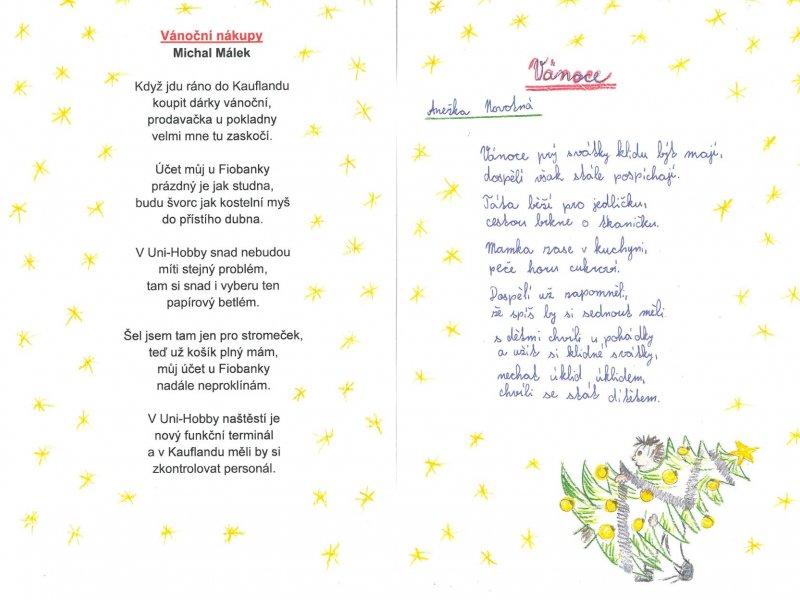 Vánoční nákupy
Michal Málek
Když jdu ráno do Kauflandu
koupit dárky vánoční,
prodavačka u pokladny
velmi mne tu zaskočí.
Účet můj u Fiobanky
prázdný je jak studna,
budu švorc jak kostelní myš
do přístího dubna.
V Uni-Hobby snad nebudou
míti stejný problém,
tam si snad i vyberu ten
papírový betlém.
Šel jsem tam jen pro stromeček,
teď už košík plný mám,
můj účet u Fiobanky
nadále neproklínám.
V Uni-Hobby naštěstí je
nový funkční terminál
a v Kauflandu měli by si
zkontrolovat personál.
Vánoce
Anežka Novotná
Vánoce prý svátky klidu být mají,
dospělí však stále pospíchají.
Táta běží pro jedličku,
cestou brkne o tkaničku.
Mamka zase v kuchyni,
peče horu cukroví.
Dospělí už zapomněli,
že spíš by si sednout měli
s dětmi chvíli u pohádky
a užít si klidné svátky,
nechat úklid úklidem,
chvíli se stát dítětem.